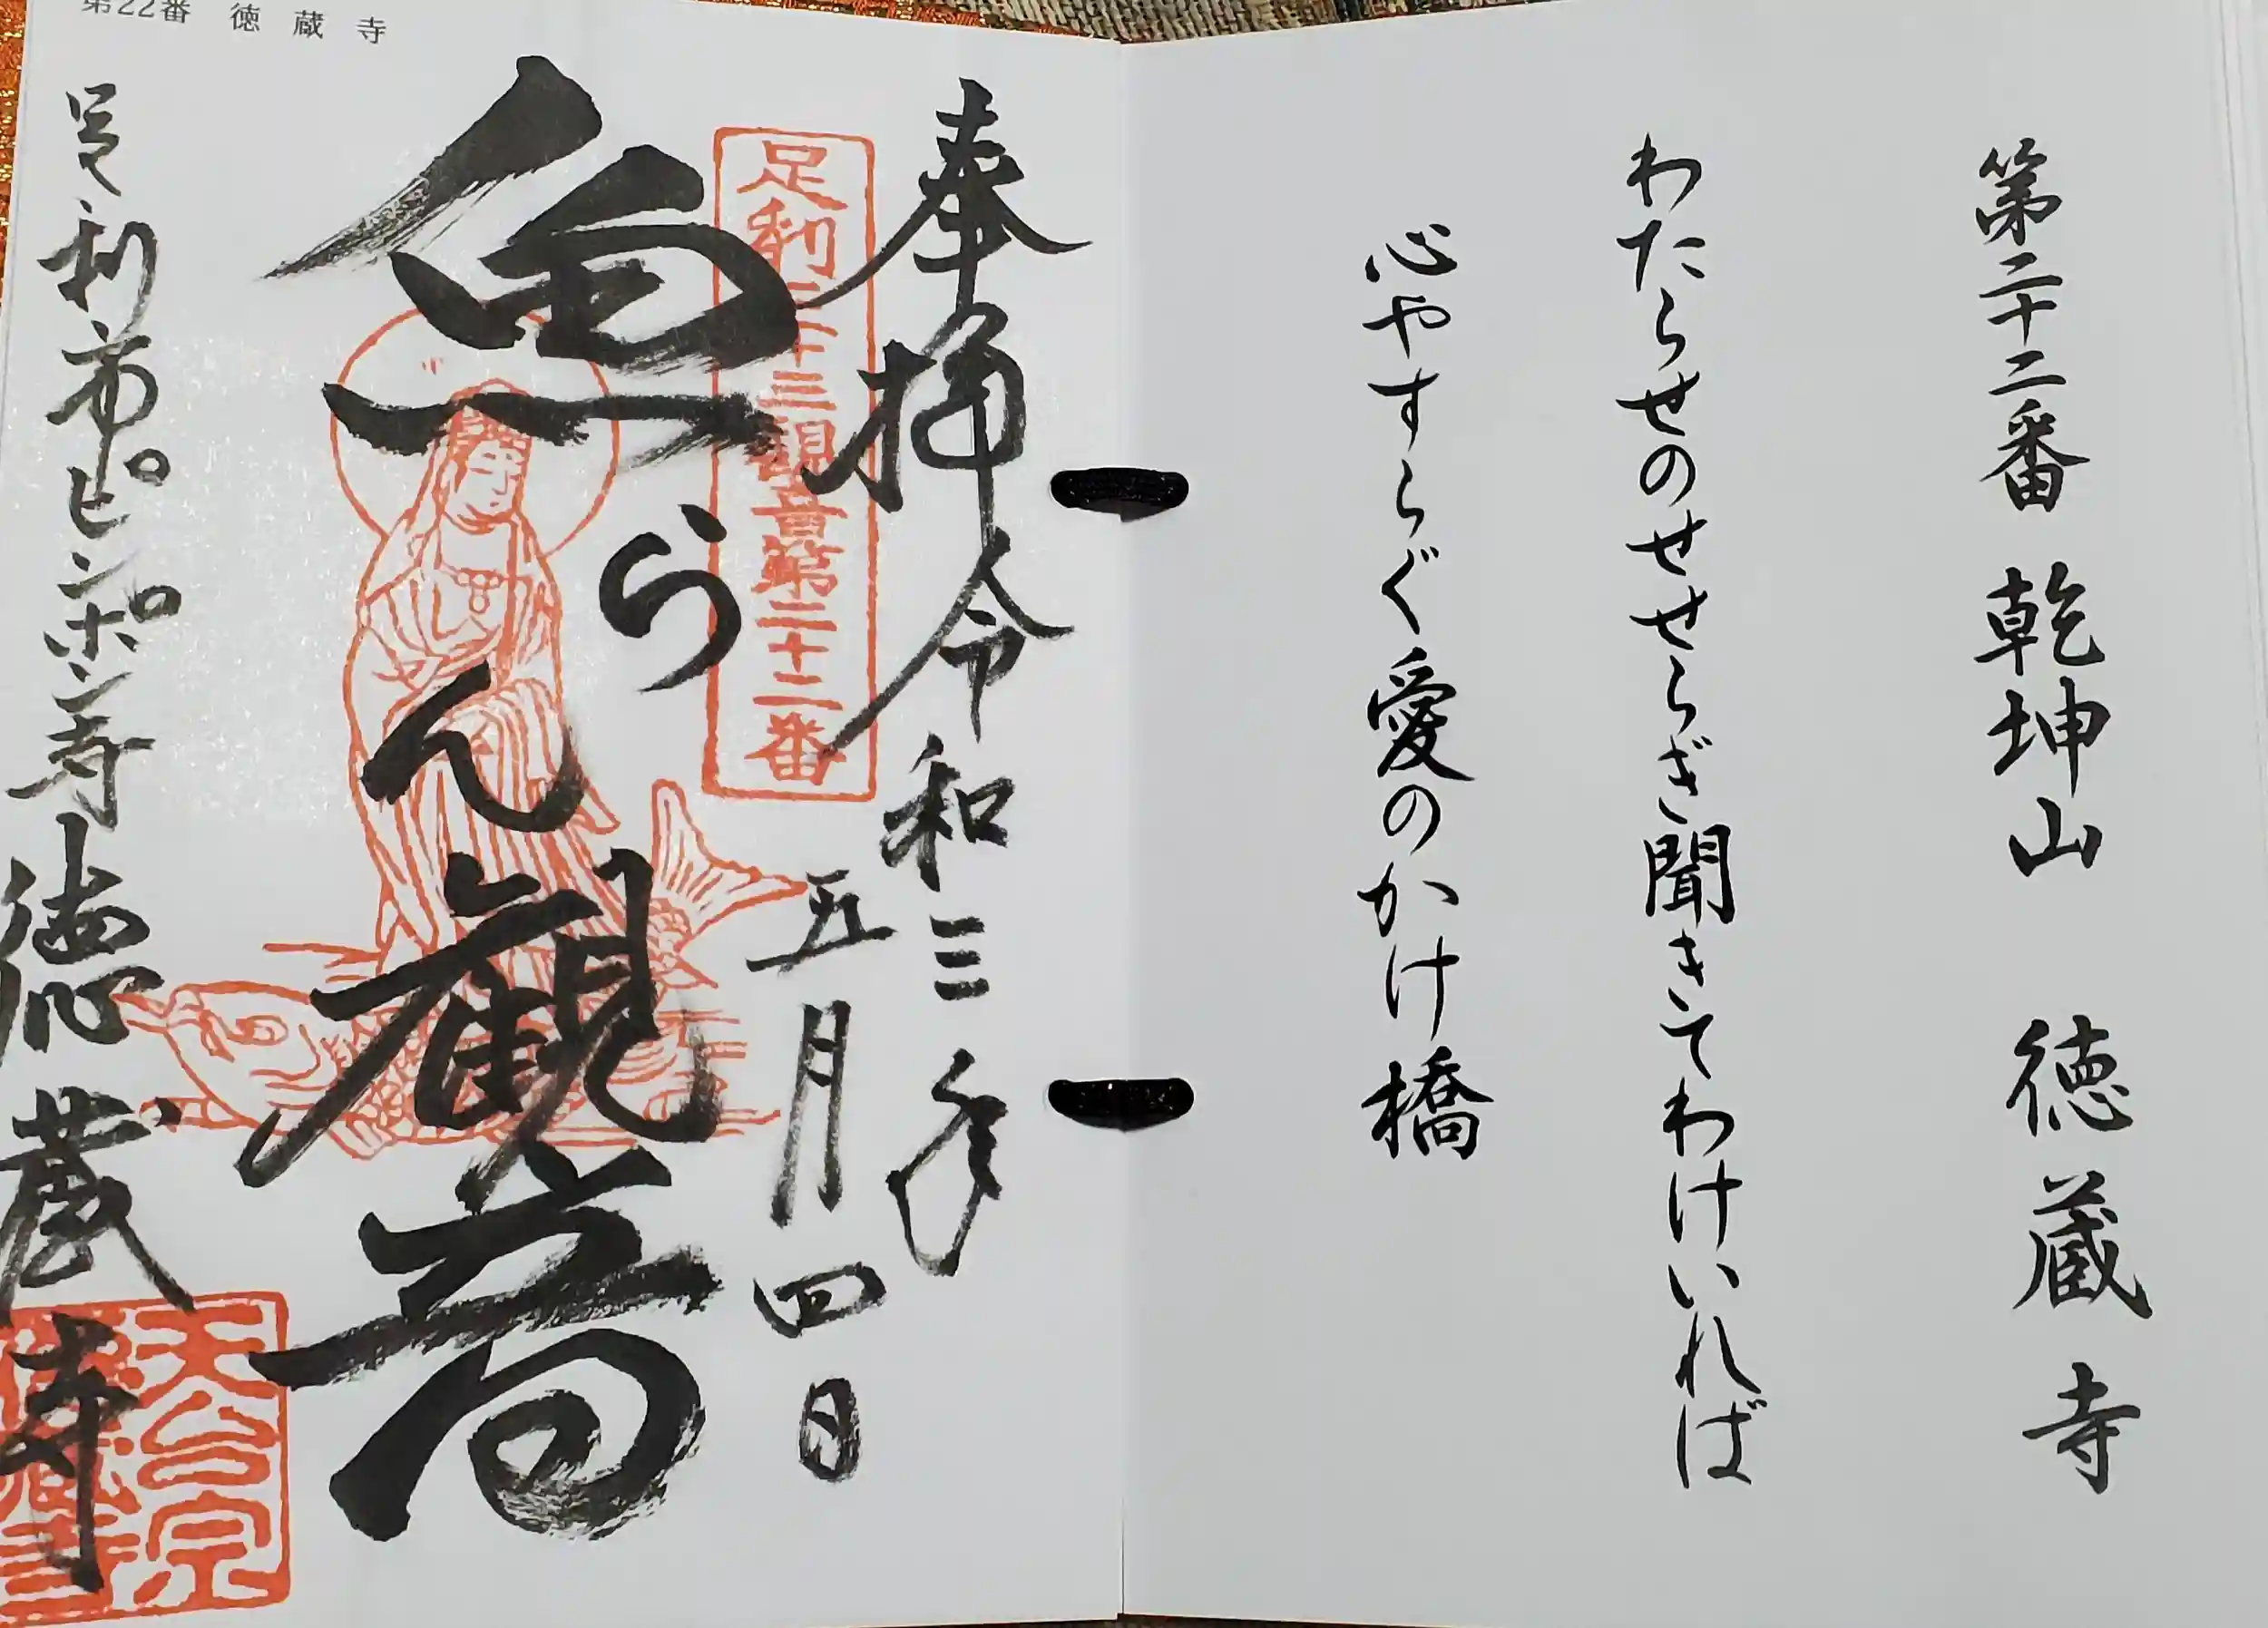 第二十二番 乾坤山 徳蔵寺
わたらせのせせらぎ聞きてわけいれば
心やすらぐ愛のかけ橋
第22番 徳蔵寺
奉拝 令和三年
五月四日
足利三十三観音第二十二番
魚らん観音
足利市ピンピン寺 徳蔵寺
天台宗
徳蔵寺